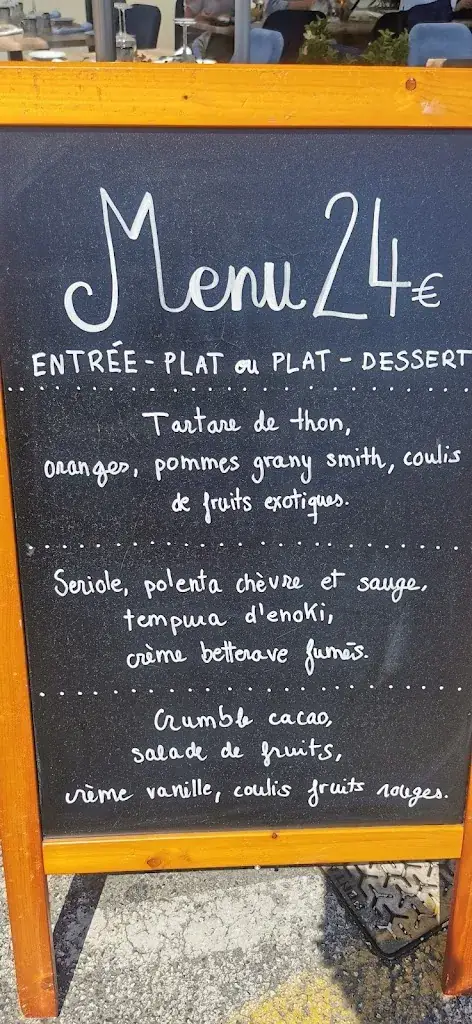 Menu 24€
ENTRÉE - PLAT ou PLAT - DESSERT
Tartare de thon,
oranges, pommes grany smith, coulis
de fruits exotiques.
Seriole, polenta chèvre et sauge,
tempura d'enoki,
crème betterave fumés.
Crumble cacao,
salade de fruits,
crème vanille, coulis fruits rouges.